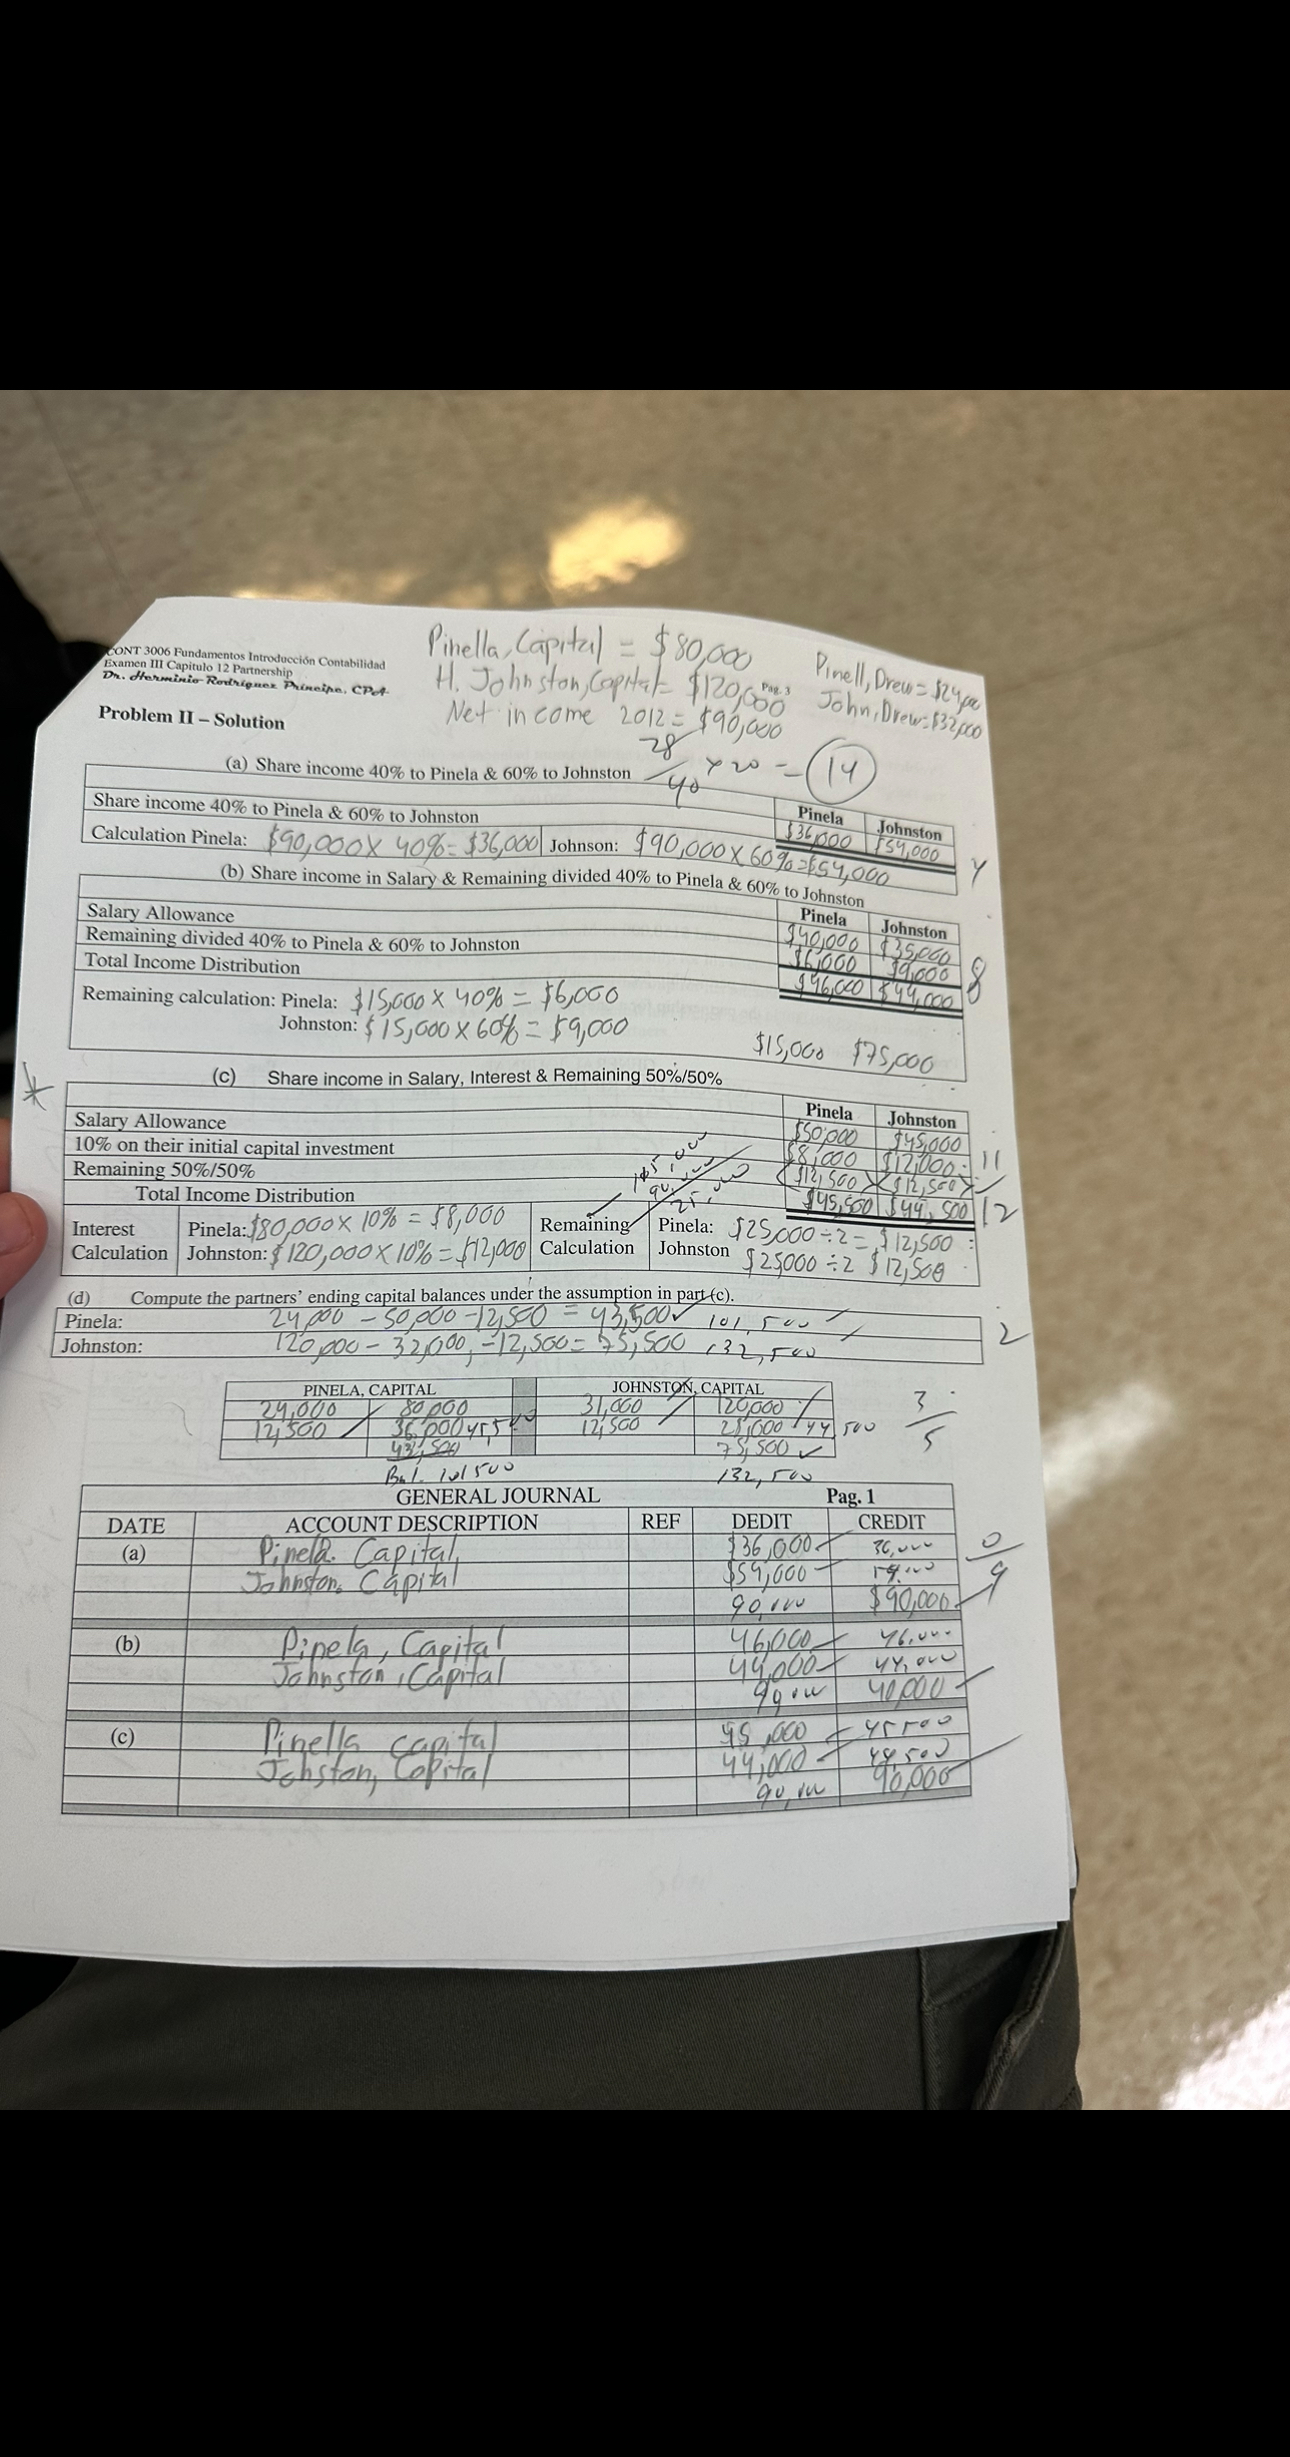 Pinella, Capital = $80,000
H. Johnston, Capital = $120,000
Net income 2012 = $90,000
Pinell, Drew = $24,000
John, Drew = $32,000
CONT 3006 Fundamentos Introducción Contabilidad
Examen III Capitulo 12 Partnership
Dr. Herminio Rodríguez Príncipe, CPA
Pag. 3
Problem II – Solution
28/40 x 20 = 14
(a) Share income 40% to Pinela & 60% to Johnston
Pinela Johnston
Share income 40% to Pinela & 60% to Johnston $36,000 $54,000
Calculation Pinela: $90,000 x 40% = $36,000 Johnson: $90,000 x 60% = $54,000
(b) Share income in Salary & Remaining divided 40% to Pinela & 60% to Johnston
Pinela Johnston
Salary Allowance $40,000 $35,000
Remaining divided 40% to Pinela & 60% to Johnston $6,000 $9,000
8
Total Income Distribution $46,000 $44,000
Remaining calculation: Pinela: $15,000 x 40% = $6,000
Johnston: $15,000 x 60% = $9,000
$15,000 $75,000
(c) Share income in Salary, Interest & Remaining 50%/50%
Pinela Johnston
Salary Allowance $50,000 $45,000
10% on their initial capital investment $8,000 $12,000
11/12
Remaining 50%/50% <$12,500> <$12,500>
Total Income Distribution $45,500 $44,500
90,000
25,000
Interest Calculation Pinela: $80,000 x 10% = $8,000 Remaining Calculation Pinela: $25,000 ÷ 2 = $12,500
Johnston: $120,000 x 10% = $12,000 Johnston $25,000 ÷ 2 $12,500
(d) Compute the partners' ending capital balances under the assumption in part (c).
Pinela: 24,000 - 50,000 - 12,500 = 43,500 101,500
2
Johnston: 120,000 - 32,000, - 12,500 = 75,500 132,500
PINELA, CAPITAL JOHNSTON, CAPITAL
24,000 80,000 31,000 120,000
3/5
12,500 36,000 45,500 12,500 44,500
43,500 75,500
Bal. 101500 132,500
GENERAL JOURNAL Pag. 1
DATE ACCOUNT DESCRIPTION REF DEDIT CREDIT
(a) Pinela. Capital, $36,000 36,000
0/9
Johnston, Capital $54,000
90,000 $90,000
(b) Pinela, Capital 46,000 46,000
Johnston, Capital 44,000 44,000
90,000
(c) Pinella capital 45,000 45500
Johston, Capital 44,000 44,500
90,000 90,000